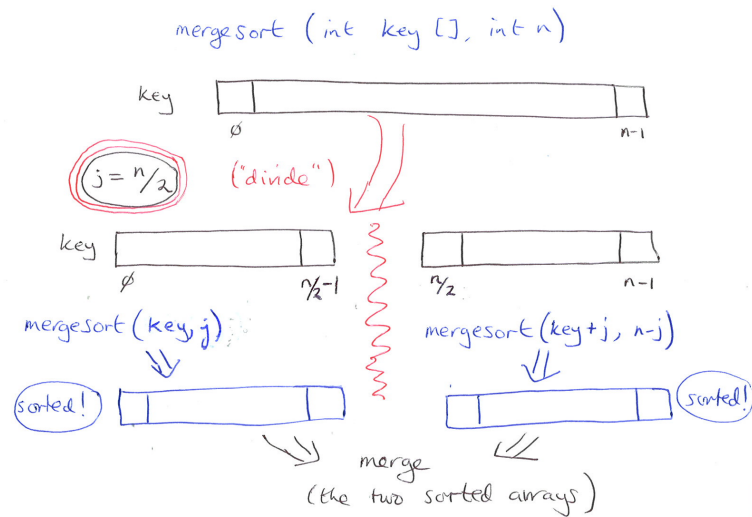 mergesort (int key [], int n)
key
0 n-1
j = n/2 ("divide")
key
0 n/2-1 n/2 n-1
mergesort (key, j) mergesort (key+j, n-j)
sorted! sorted!
merge
(the two sorted arrays)